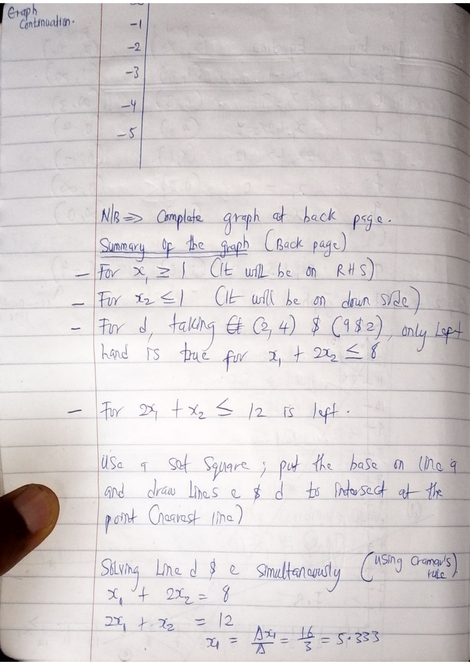 Graph
Continuation.
-1
-2
-3
-4
-5
N/B => Complete graph at back page.
Summary of the graph (Back page)
- For x₁ ≥ 1 (It will be on RHS)
- For x₂ ≤ 1 (It will be on down side)
- For d, taking (2, 4) $ (9 $ 2), only left
hand is true for x₁ + 2x₂ ≤ 8
- For 2x₁ + x₂ ≤ 12 is left.
Use a set square; put the base on line a
and draw lines e $ d to intersect at the
point (nearest line)
Solving Line d $ e simultaneously (using Cramar's
rule)
x₁ + 2x₂ = 8
2x₁ + x₂ = 12
x₁ = Δx₁/Δ = 16/3 = 5.333